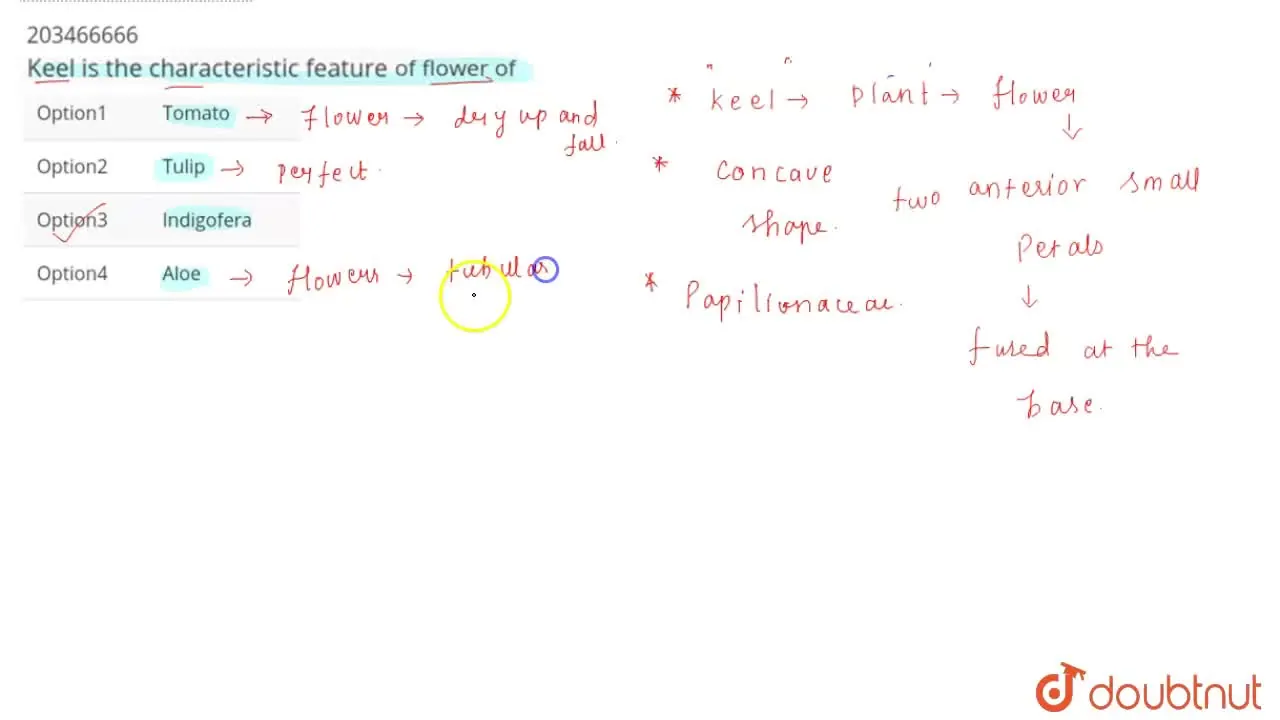 203466666
Keel is the characteristic feature of flower of
Option1 Tomato → flower → dry up and
fall.
Option2 Tulip → perfect.
Option3 Indigofera
Option4 Aloe → flowers → tubular
* keel → plant → flower
↓
* concave
shape.
two anterior small
petals
↓
* Papilionaceae.
fused at the
base.
doubtnut